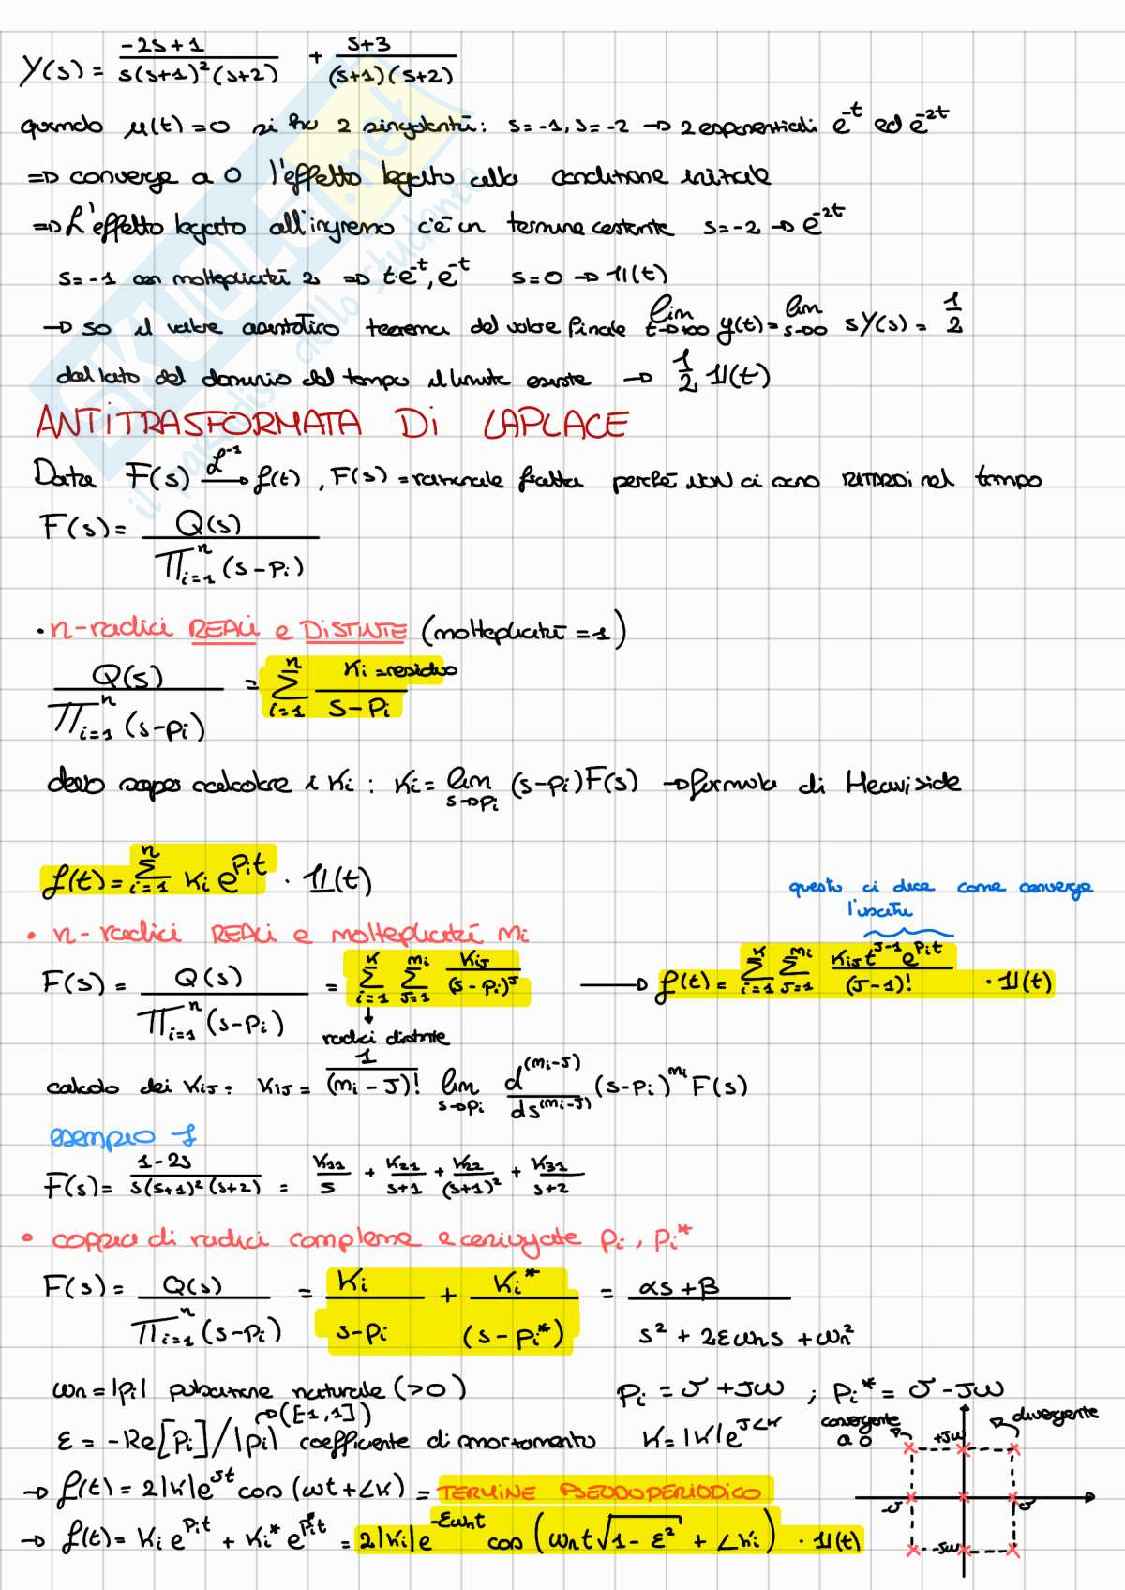 Y(s) = (-2s+1)/(s(s+1)²(s+2)) + (s+3)/((s+1)(s+2))
quando μ(t)=0 si ha 2 singolarità: s=-1, s=-2 → 2 esponenziali e^-t ed e^-2t
⇒ converge a 0 l'effetto legato alla condizione iniziale
⇒ L'effetto legato all'ingresso c'è un termine costante s=-2 → e^-2t
s=-1 con molteplicità 2 ⇒ t·e^-t, e^-t s=0 → 1(t)
→ so il valore asintotico teorema del valore finale lim t→+∞ y(t) = lim s→0 sY(s) = 1/2
dal lato del dominio del tempo il limite esiste → 1/2 1(t)
ANTITRASFORMATA DI LAPLACE
Data F(s) ℒ^-1→ f(t), F(s) = razionale fratta perché NON ci sono RITARDI nel tempo
F(s) = Q(s)/∏_{i=1}^n (s-pi)
• n-radici REALI e DISTINTE (molteplicità = 1)
Q(s)/∏_{i=1}^n (s-pi) = Σ_{i=1}^n Ki = residuo/(s-pi)
devo saper calcolare i Ki : Ki = lim s→pi (s-pi)F(s) → formula di Heaviside
f(t) = Σ_{i=1}^n Ki e^{pit} · 1(t)
questo ci dice come converge
l'uscita
• n-radici REALI e molteplicità mi
F(s) = Q(s)/∏_{i=1}^n (s-pi) = Σ_{i=1}^K Σ_{J=1}^{mi} KiJ/(s-pi)^J → f(t) = Σ_{i=1}^K Σ_{J=1}^{mi} KiJ t^{J-1} e^{pit}/(J-1)! · 1(t)
radici distinte
calcolo dei KiJ : KiJ = 1/(mi-J)! lim s→pi d^(mi-J)/ds^(mi-J) (s-pi)^mi F(s)
esempio 1
F(s) = (1-2s)/(s(s+1)²(s+2)) = K11/s + K21/(s+1) + K22/(s+1)² + K31/(s+2)
• coppia di radici complesse e coniugate pi, pi*
F(s) = Q(s)/∏_{i=1}^n (s-pi) = Ki/(s-pi) + Ki*/(s-pi*) = (αs+β)/(s² + 2εωns + ωn²)
ωn = |pi| pulsazione naturale (>0) pi = σ+Jω ; pi* = σ-Jω
→([-1,1])
ε = -Re[pi]/|pi| coefficiente di smorzamento K = |K|e^{J∠K}
convergente a 0
divergente
+Jω
-σ σ
-Jω
→ f(t) = 2|K|e^{σt} cos(ωt+∠K) = TERMINE PSEUDOPERIODICO
→ f(t) = Ki e^{pit} + Ki* e^{pi*t} = 2|Ki|e^{-εωnt} cos(ωnt√(1-ε²) + ∠Ki) · 1(t)